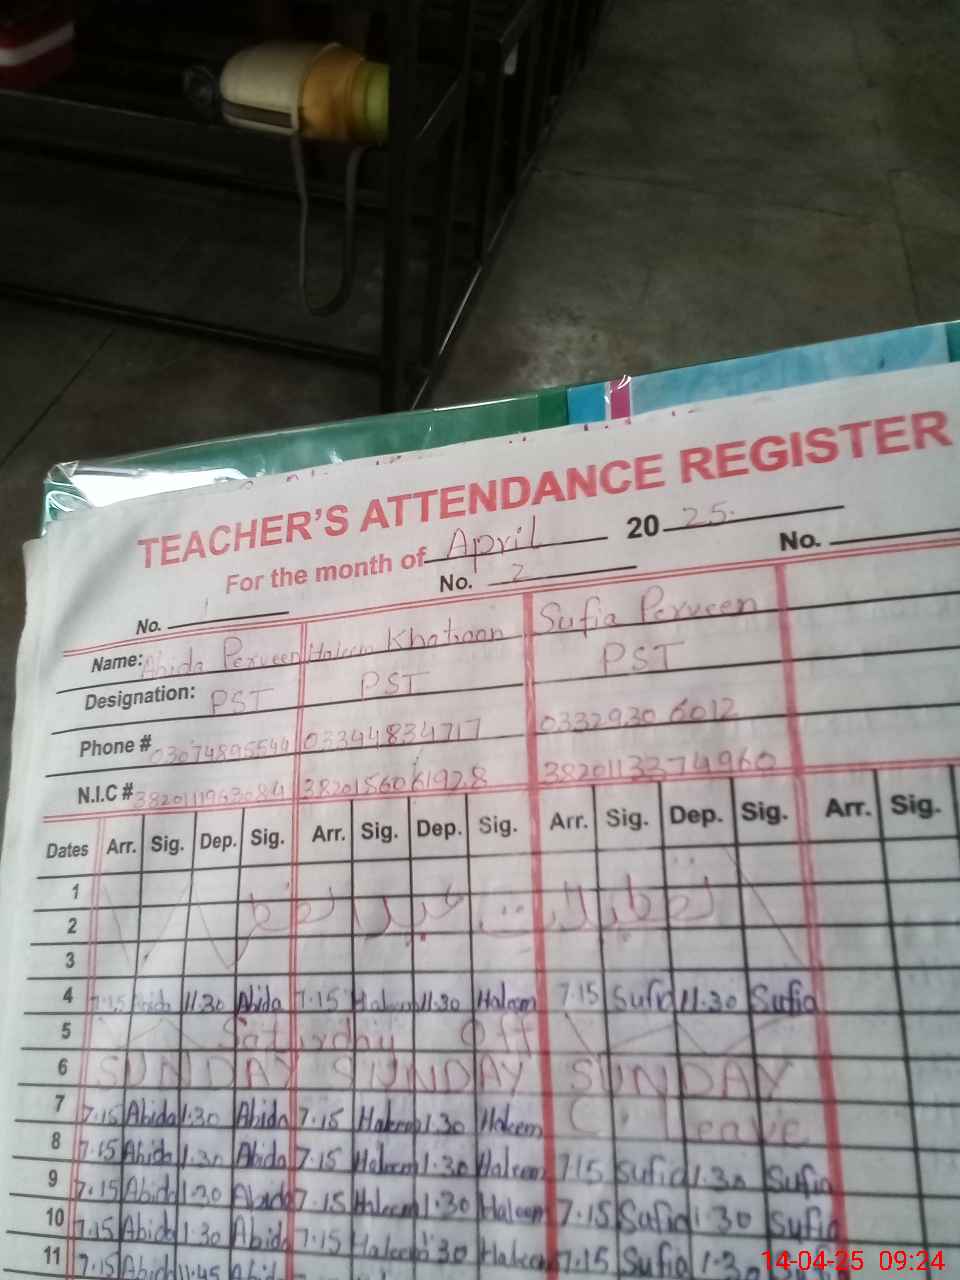 TEACHER'S ATTENDANCE REGISTER
For the month of April 2025.
No. 1 No. 2 No.
Name: Abida Perveen Haleem Khatoon Sufia Perveen
Designation: PST PST PST
Phone # 03074895544 03344834717 03329306012
N.I.C # 382011963084 3820156061928 3820113374960
Dates Arr. Sig. Dep. Sig. Arr. Sig. Dep. Sig. Arr. Sig. Dep. Sig. Arr. Sig.
1
2 تعطیلات عید الفطر
3
4 7.15 Abida 11.30 Abida 7.15 Haleem 11.30 Haleem 7.15 Sufia 11.30 Sufia
5 Saturday Off
6 SUNDAY SUNDAY SUNDAY
7 7.15 Abida 1.30 Abida 7.15 Haleem 1.30 Haleem C. Leave
8 7.15 Abida 1.30 Abida 7.15 Haleem 1.30 Haleem 7.15 Sufia 1.30 Sufia
9 7.15 Abida 1.30 Abida 7.15 Haleem 1.30 Haleem 7.15 Sufia 1.30 Sufia
10 7.15 Abida 1.30 Abida 7.15 Haleem 1.30 Haleem 7.15 Sufia 1.30
11 7.15 Abida 11.45 Abida
14-04-25 09:24